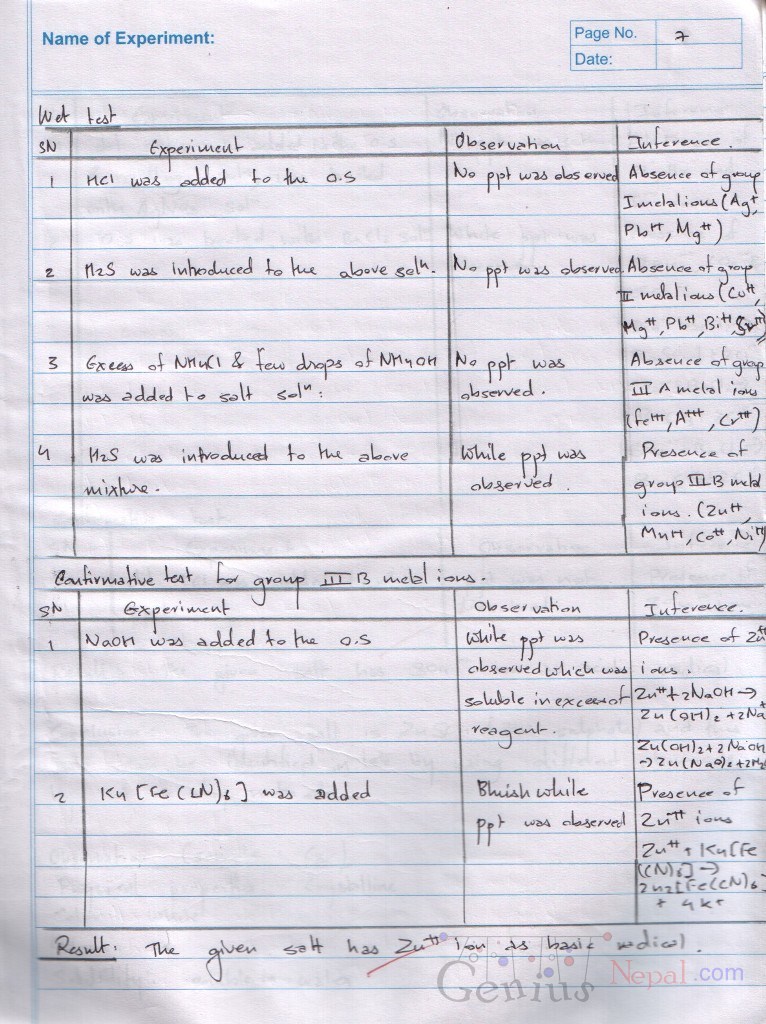 Name of Experiment:
Page No. 7
Date:
Wet test
SN Experiment Observation Inference.
1 HCl was added to the O.S No ppt was observed Absence of group
I metal ions (Ag+,
Pb++, Mg++)
2 H2S was introduced to the above solⁿ. No ppt was observed. Absence of group
II metal ions (Cu++,
Mg++, Pb++, Bi++
3 Excess of NH4Cl & few drops of NH4OH No ppt was Absence of group
was added to salt solⁿ: observed. III A metal ions
(Fe+++, A+++, Cr+++)
4 H2S was introduced to the above White ppt was Presence of
mixture. observed. group III B metal
ions. (Zn++,
Mn++, Co++, Ni++)
Confirmative test for group III B metal ions.
SN Experiment Observation Inference.
1 NaOH was added to the O.S White ppt was Presence of Zn++
observed which was ions.
soluble in excess of Zn++ + 2NaOH →
reagent. Zn(OH)2 + 2Na+
Zn(OH)2 + 2NaOH
→ Zn(NaO)2 + 2H2O
2 K4[Fe(CN)6] was added Bluish white Presence of
ppt was observed Zn++ ions
Zn++ + K4[Fe
(CN)6] →
Zn2[Fe(CN)6]
+ 4K+
Result: The given salt has Zn++ ion as basic radical.
Genius Nepal.com